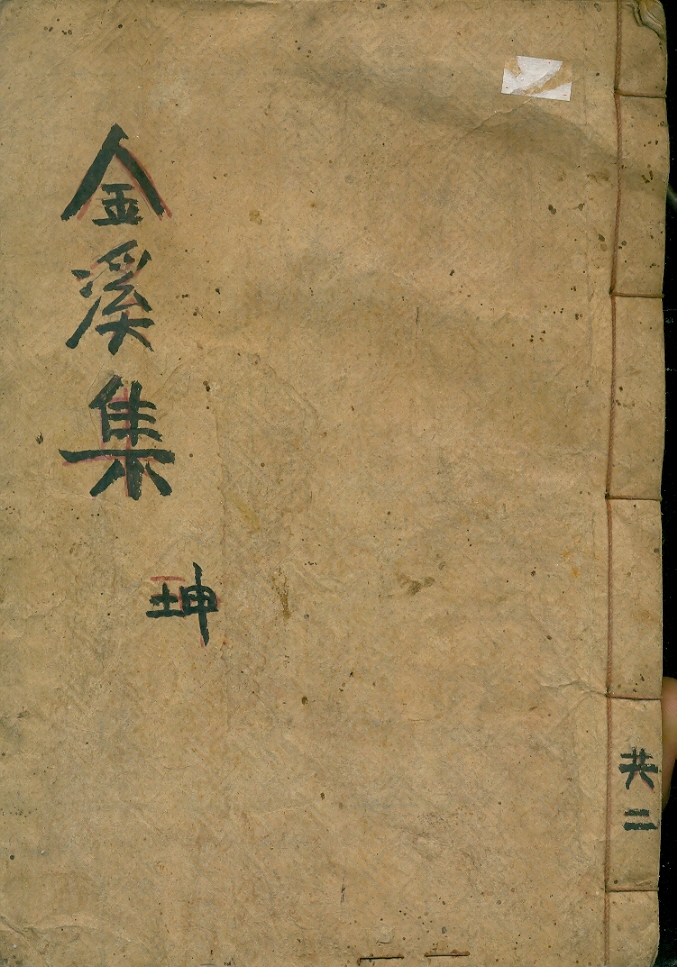 金溪集
坤
共二